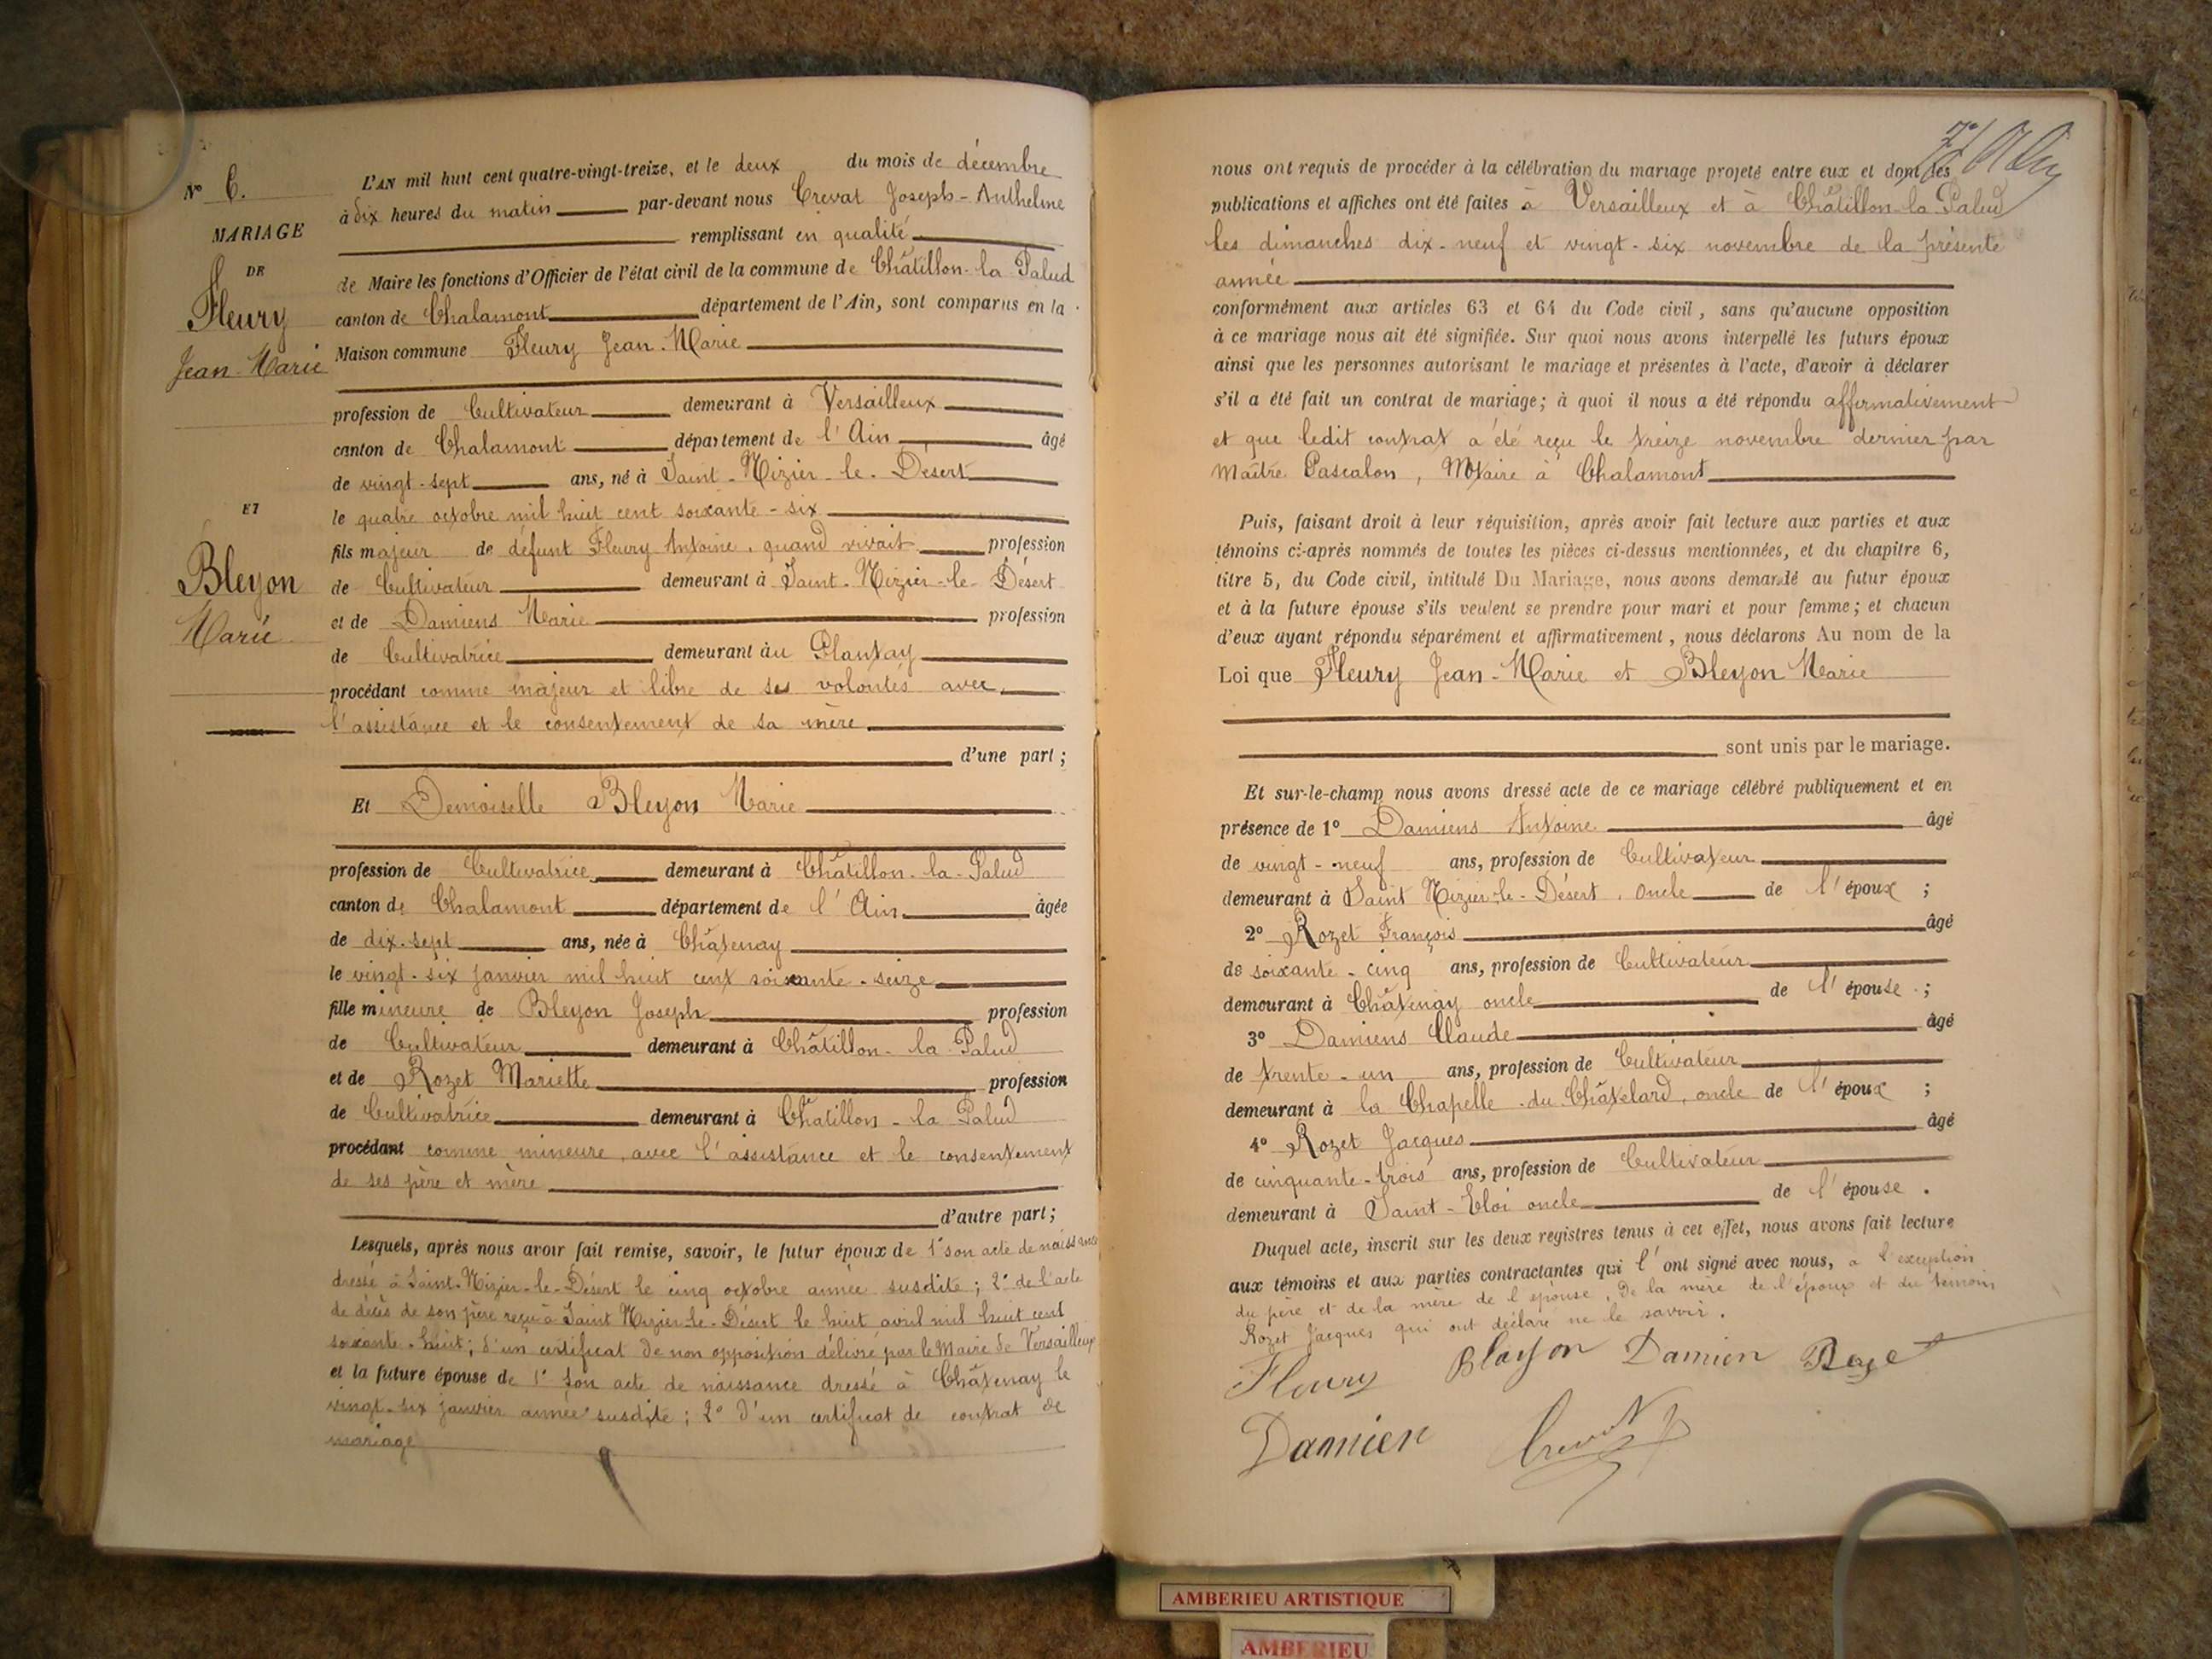 N° 6.
MARIAGE
DE
Fleury
Jean-Marie
ET
Bleyon
Marie
L'AN mil huit cent quatre-vingt-treize, et le deux du mois de décembre
à dix heures du matin par-devant nous Crevat Joseph-Anthelme
remplissant en qualité
de Maire les fonctions d'Officier de l'état civil de la commune de Châtillon-la-Palud
canton de Chalamont département de l'Ain, sont comparus en la
Maison commune Fleury Jean-Marie
profession de Cultivateur demeurant à Versailleux
canton de Chalamont département de l'Ain âgé
de vingt-sept ans, né à Saint-Nizier-le-Désert
le quatre octobre mil huit cent soixante-six
fils majeur de défunt Fleury Antoine, quand vivait profession
de Cultivateur demeurant à Saint-Nizier-le-Désert
et de Damiens Marie profession
de Cultivatrice demeurant au Plantay
procédant comme majeur et libre de ses volontés avec
l'assistance et le consentement de sa mère
d'une part;
Et Demoiselle Bleyon Marie
profession de Cultivatrice demeurant à Châtillon-la-Palud
canton de Chalamont département de l'Ain âgée
de dix-sept ans, née à Châtenay
le vingt-six janvier mil huit cent soixante-seize
fille mineure de Bleyon Joseph profession
de Cultivateur demeurant à Châtillon-la-Palud
et de Rozet Mariette profession
de Cultivatrice demeurant à Châtillon-la-Palud
procédant comme mineure, avec l'assistance et le consentement
de ses père et mère
d'autre part;
Lesquels, après nous avoir fait remise, savoir, le futur époux de 1° son acte de naissance
dressé à Saint-Nizier-le-Désert le cinq octobre année susdite; 2° de l'acte
de décès de son père reçu à Saint Nizier-le-Désert le huit avril mil huit cent
soixante-huit; d'un certificat de non opposition délivré par le Maire de Versailleux
et la future épouse de 1° son acte de naissance dressé à Châtenay le
vingt-six janvier année susdite; 2° d'un certificat de contrat de
mariage
nous ont requis de procéder à la célébration du mariage projeté entre eux et dont les
publications et affiches ont été faites à Versailleux et à Châtillon-la-Palud
les dimanches dix-neuf et vingt-six novembre de la présente
année
conformément aux articles 63 et 64 du Code civil, sans qu'aucune opposition
à ce mariage nous ait été signifiée. Sur quoi nous avons interpellé les futurs époux
ainsi que les personnes autorisant le mariage et présentes à l'acte, d'avoir à déclarer
s'il a été fait un contrat de mariage; à quoi il nous a été répondu affirmativement
et que ledit contrat a été reçu le treize novembre dernier par
Maître Pascalon, Notaire à Chalamont
Puis, faisant droit à leur réquisition, après avoir fait lecture aux parties et aux
témoins ci-après nommés de toutes les pièces ci-dessus mentionnées, et du chapitre 6,
titre 5, du Code civil, intitulé Du Mariage, nous avons demandé au futur époux
et à la future épouse s'ils veulent se prendre pour mari et pour femme; et chacun
d'eux ayant répondu séparément et affirmativement, nous déclarons Au nom de la
Loi que Fleury Jean-Marie et Bleyon Marie
sont unis par le mariage.
Et sur-le-champ nous avons dressé acte de ce mariage célébré publiquement et en
présence de 1° Damiens Antoine âgé
de vingt-neuf ans, profession de Cultivateur
demeurant à Saint Nizier-le-Désert, oncle de l'époux;
2° Rozet François âgé
de soixante-cinq ans, profession de Cultivateur
demeurant à Châtenay oncle de l'épouse;
3° Damiens Claude âgé
de trente-un ans, profession de Cultivateur
demeurant à la Chapelle-du-Châtelard, oncle de l'époux;
4° Rozet Jacques âgé
de cinquante-trois ans, profession de Cultivateur
demeurant à Saint-Eloi oncle de l'épouse.
Duquel acte, inscrit sur les deux registres tenus à cet effet, nous avons fait lecture
aux témoins et aux parties contractantes qui l'ont signé avec nous, à l'exception
du père et de la mère de l'épouse, de la mère de l'époux et du témoin
Rozet Jacques qui ont déclaré ne le savoir.
Fleury Bleyon Damien Rozet
Damien Crevat
AMBERIEU ARTISTIQUE
AMBERIEU